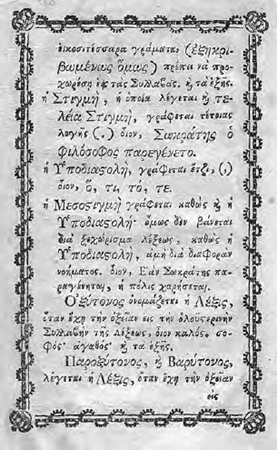 εἰκοσιτέσσαρα γράματα (ἐξηκρι-
βωμένως ὅμως) πρέπει νὰ προ-
χωρέσῃ εἰς τὰς Συλλαβὰς, ϗ τὰ ἑξῆς.
ἡ Στιγμὴ, ἡ ὁποία λέγεται ϗ τε-
λεία Στιγμὴ, γράφεται τέτοιας
λογῆς (.) οἷον, Σωκράτης ὁ
Φιλόσοφος παρεγένετο.
ἡ Ὑποδιαστολὴ, γράφεται ἔτζι, (,)
οἷον, ὅ, τι, τό, τε.
ἡ Μεσοστιγμὴ γράφεται καθὼς ϗ ἡ
Ὑποδιαστολὴ· ὅμως δὲν βάνεται
διὰ ξεχώρισμα λέξεως, καθὼς ἡ
Ὑποδιαστολὴ, ἀμὴ διὰ διαφορὰν
νοήματος. οἷον, Ἐὰν Σωκράτης πα-
ραγένηται, ἡ πόλις χαρήσεται.
Ὀξύτονος ὀνομάζεται ἡ Λέξις,
ὅταν ἔχῃ τὴν ὀξεῖαν εἰς τὴν ὁλουστερινὴν
Συλλαβὴν τῆς Λέξεως, οἷον καλός· σο-
φός· ἀγαθός· ϗ τὰ ἑξῆς.
Παροξύτονος, ϗ Βαρύτονος,
λέγεται ἡ Λέξις, ὅταν ἔχῃ τὴν ὀξεῖαν
εἰς